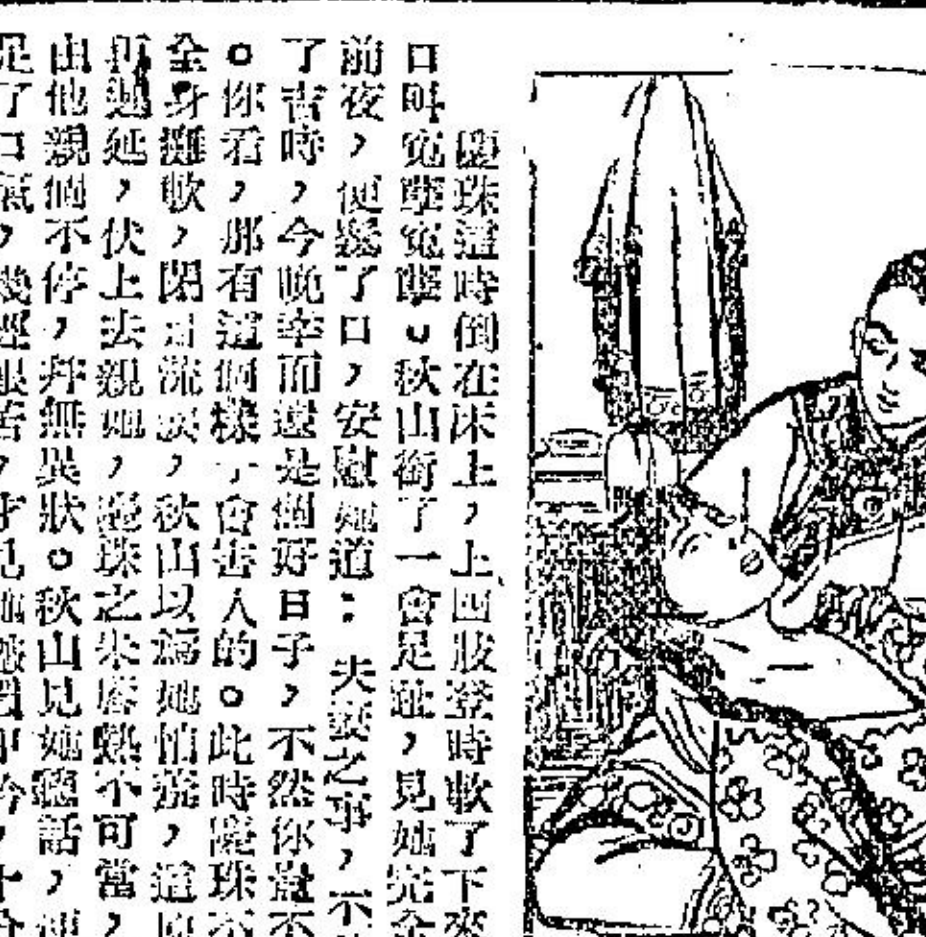 慶珠這時倒在床上,上四肢登時軟了下來
口叫冤孽冤孽。秋山銜了一會足趾,見她完全
前夜,便鬆了口,安慰她道:夫妻之事,不
了吉時,今晚幸而還是個好日子,不然你豈不
。你看,那有這個樣子會害人的。此時慶珠不
全身攤軟,閉目流淚,秋山以為她怕羞,道
再延,伏上去親她,慶珠之朱唇熱不可當,
由他親個不停,幷無異狀。秋山見她聽話,便
足了口氣,幾經艱苦,才見她